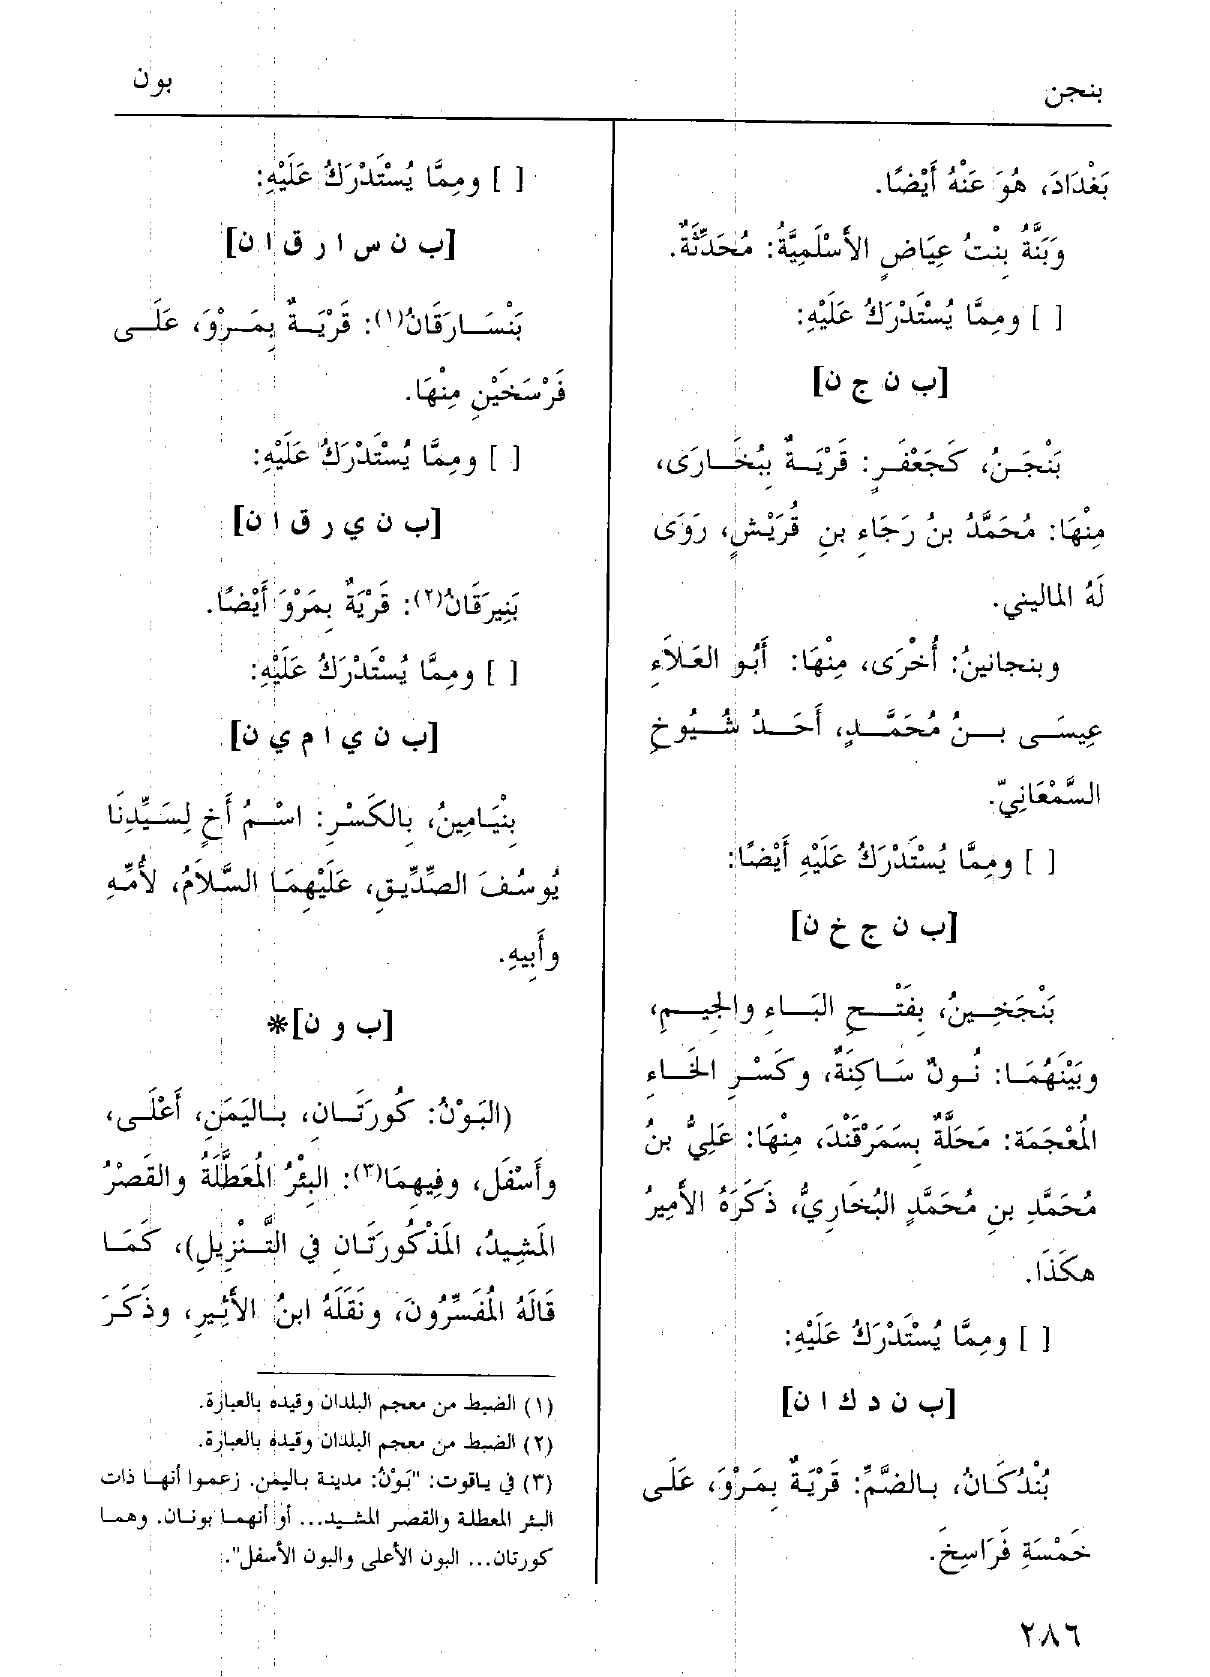 بنجن
بون
بَغْدَادَ، هُوَ عَنْهُ أَيْضًا.
وَبَنَّةُ بِنْتُ عِيَاضٍ الأَسْلَمِيَّةُ: مُحَدِّثَةٌ.
[ ] ومِمَّا يُسْتَدْرَكُ عَلَيْهِ:
[ب ن ج ن]
بَنْجَنُ، كَجَعْفَرٍ: قَرْيَةٌ بِبُخَارَى،
مِنْهَا: مُحَمَّدُ بنُ رَجَاءِ بنِ قُرَيْشٍ، رَوَى
لَهُ الماليني.
وبنجانينُ: أُخْرَى، مِنْهَا: أَبُو العَلاَءِ
عِيسَى بنُ مُحَمَّدٍ، أَحَدُ شُيُوخِ
السَّمْعَانِيّ.
[ ] ومِمَّا يُسْتَدْرَكُ عَلَيْهِ أَيْضًا:
[ب ن ج خ ن]
بَنْجَخِينُ، بِفَتْحِ البَاءِ والجِيمِ،
وبَيْنَهُمَا: نُونٌ سَاكِنَةٌ، وكَسْرِ الخَاءِ
المُعْجَمَة: مَحَلَّةٌ بِسَمَرْقَنْدَ، مِنْهَا: عَلِيُّ بنُ
مُحَمَّدِ بنِ مُحَمَّدٍ البُخَارِيُّ، ذَكَرَهُ الأَمِيرُ
هكَذَا.
[ ] ومِمَّا يُسْتَدْرَكُ عَلَيْهِ:
[ب ن د ك ا ن]
بُنْدُكَانُ، بالضَّمِّ: قَرْيَةٌ بِمَرْوَ، عَلَى
خَمْسَةِ فَرَاسِخَ.
[ ] ومِمَّا يُسْتَدْرَكُ عَلَيْهِ:
[ب ن س ا ر ق ا ن]
بَنْسَارَقَانُ(١): قَرْيَةٌ بِمَرْوَ، عَلَى
فَرْسَخَيْنِ مِنْهَا.
[ ] ومِمَّا يُسْتَدْرَكُ عَلَيْهِ:
[ب ن ي ر ق ا ن]
بَنِيرَقَانُ(٢): قَرْيَةٌ بِمَرْوَ أَيْضًا.
[ ] ومِمَّا يُسْتَدْرَكُ عَلَيْهِ:
[ب ن ي ا م ي ن]
بِنْيَامِينُ، بِالكَسْرِ: اسْمُ أَخٍ لِسَيِّدِنَا
يُوسُفَ الصِّدِّيقِ، عَلَيْهِمَا السَّلاَمُ، لأُمِّهِ
وأَبِيهِ.
[ب و ن]*
(البَوْنُ: كُورَتَانِ، باليَمَنِ، أَعْلَى،
وأَسْفَل، وفِيهِمَا(٣): البِئْرُ المُعَطَّلَةُ والقَصْرُ
المَشِيدُ، المَذْكُورَتَانِ فِي التَّنْزِيلِ)، كَمَا
قَالَهُ المُفَسِّرُونَ، ونَقَلَهُ ابنُ الأَثِيرِ، وذَكَرَ
(١) الضبط من معجم البلدان وقيده بالعبارة.
(٢) الضبط من معجم البلدان وقيده بالعبارة.
(٣) في ياقوت: "بَوْنُ: مدينة باليمن. زعموا أنها ذات
البئر المعطلة والقصر المشيد... أو أنهما بونان. وهما
كورتان... البون الأعلى والبون الأسفل".
٢٨٦